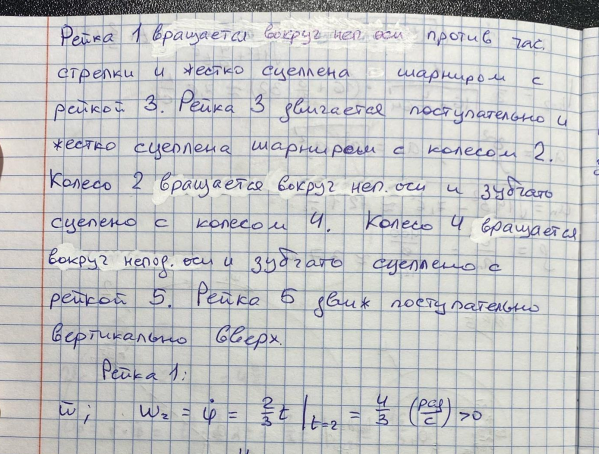 Рейка 1 вращается вокруг неп. оси против час.
стрелки и жестко сцеплена шарниром с
рейкой 3. Рейка 3 двигается поступательно и
жестко сцеплена шарниром с колесом 2.
Колесо 2 вращается вокруг неп. оси и зубчато
сцепено с колесом 4. Колесо 4 вращается
вокруг непод. оси и зубчато сцеплено с
рейкой 5. Рейка 5 движ поступательно
вертикально вверх.
Рейка 1:
ω̄; ω_z = φ̇ = 2/3 t |_{t=2} = 4/3 (рад/с) >0